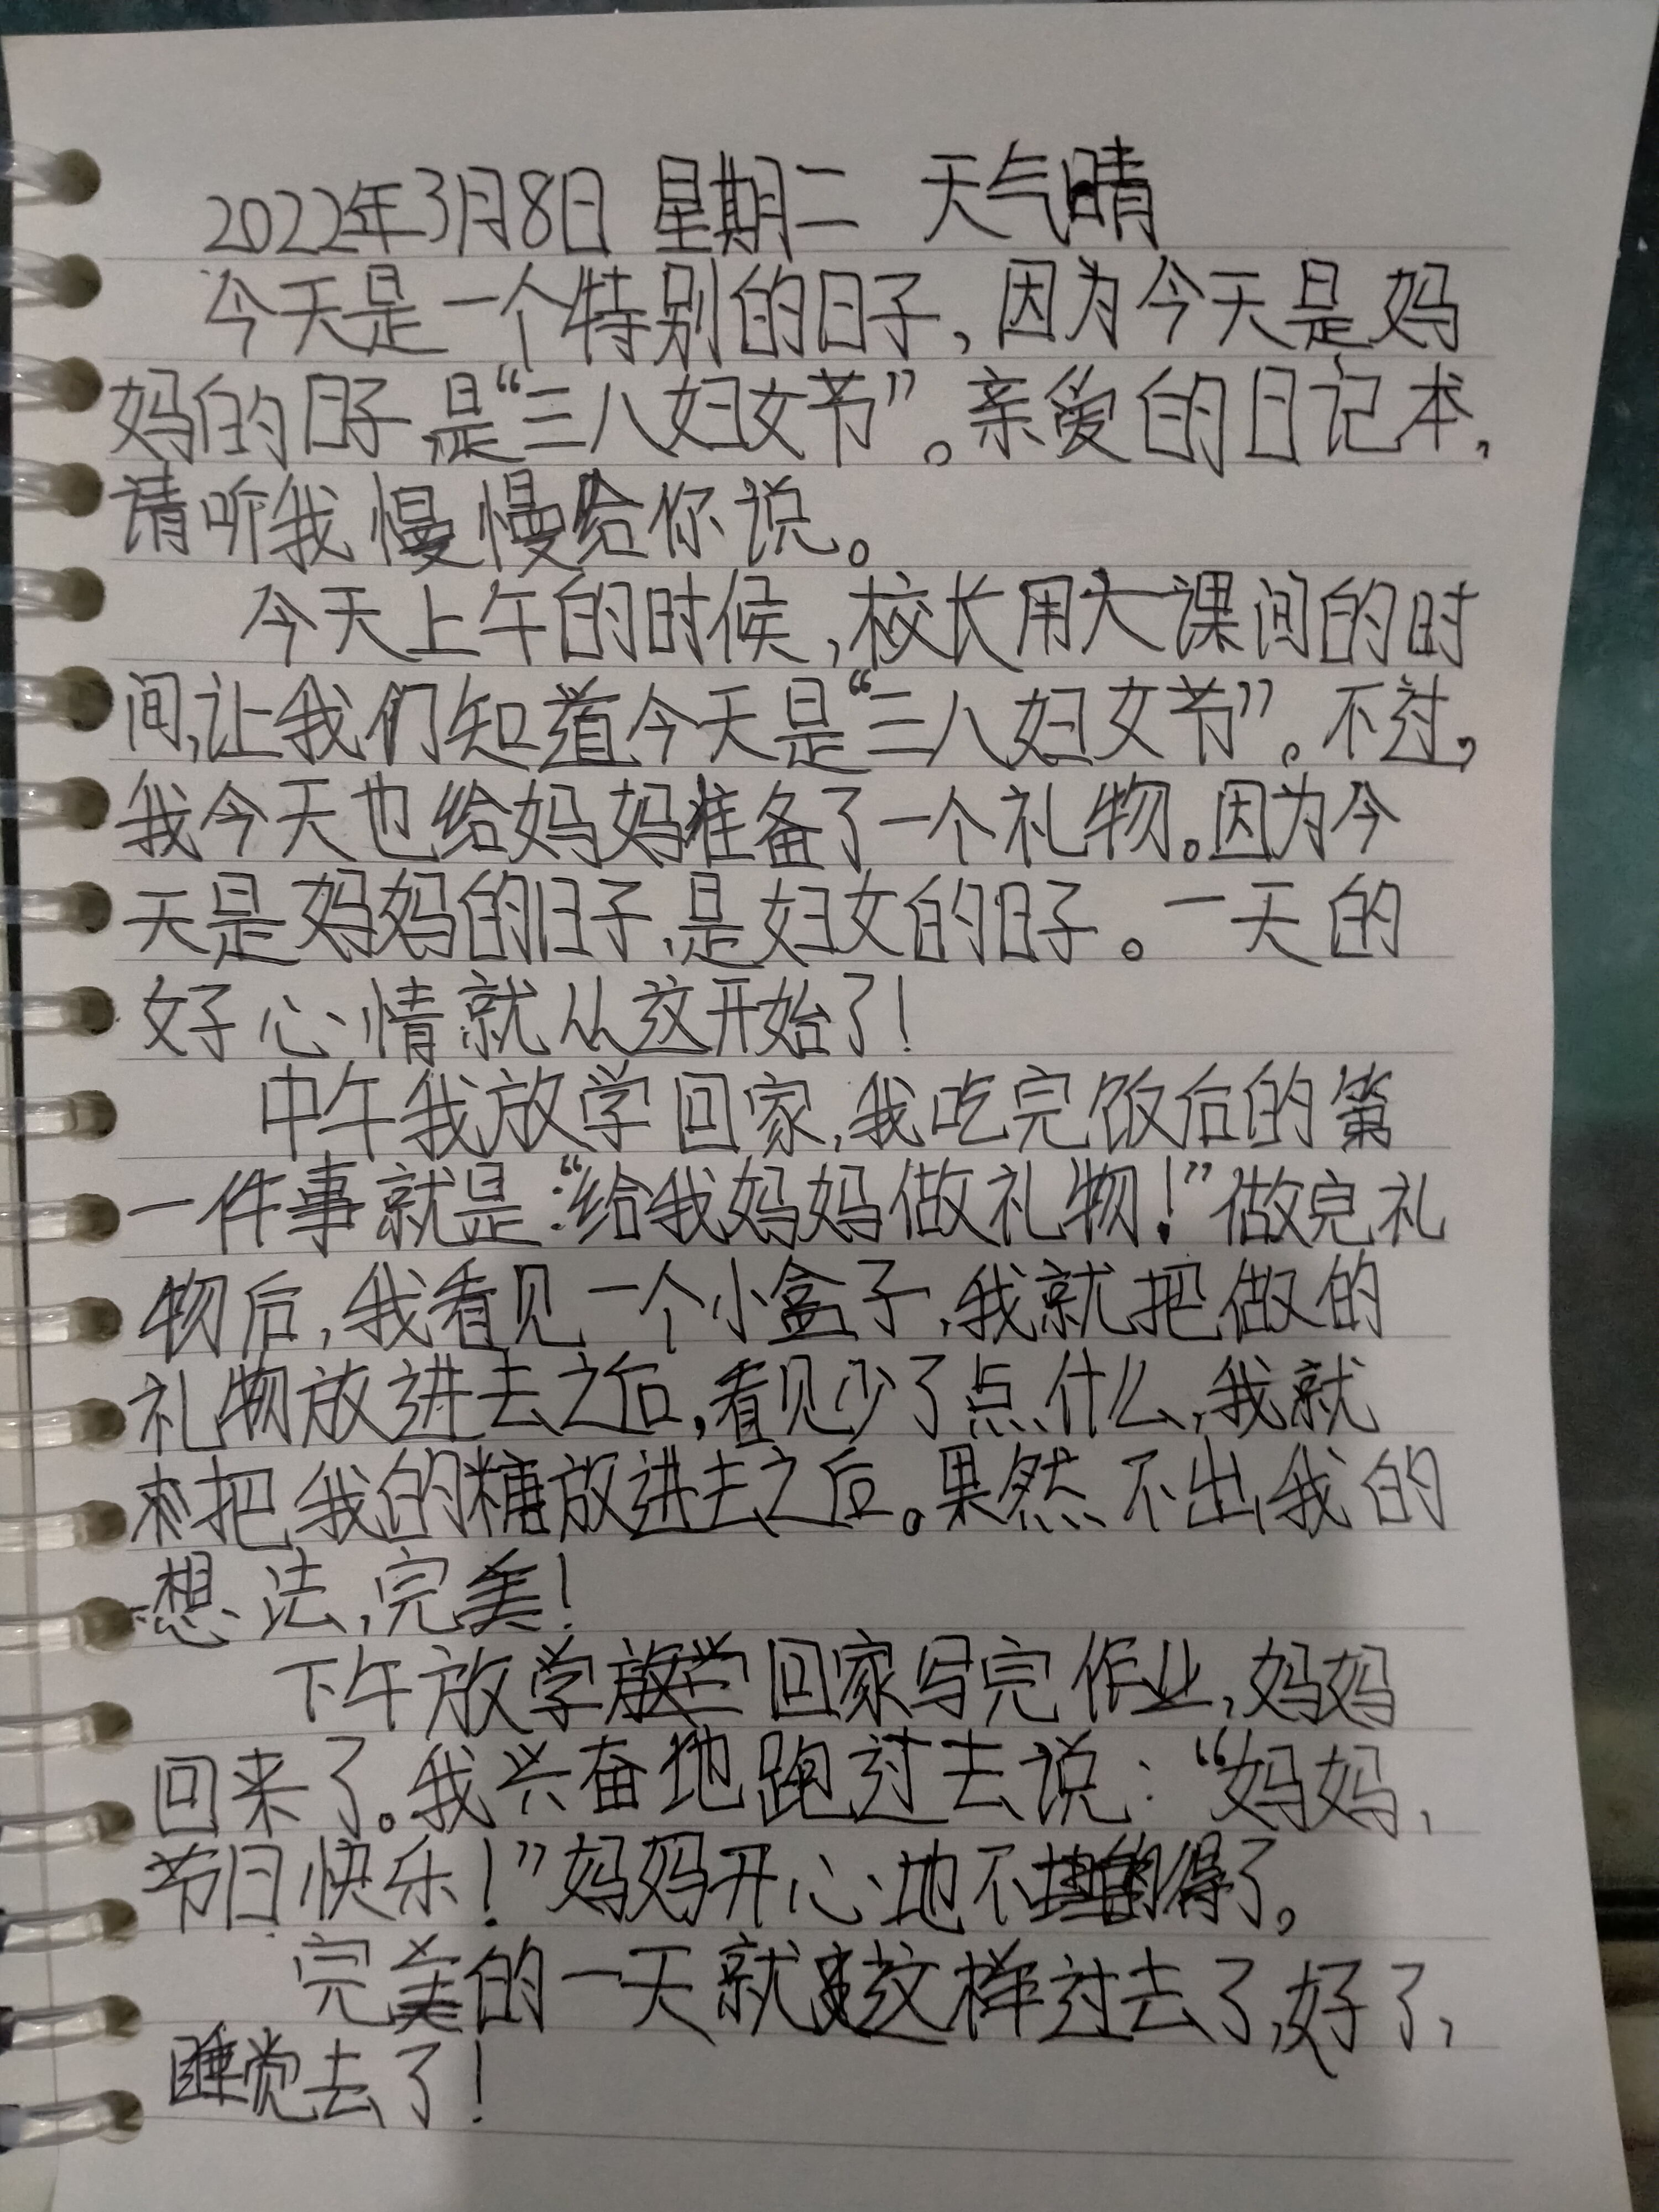 2022年3月8日 星期二 天气晴
今天是一个特别的日子,因为今天是妈
妈的日子,是“三八妇女节”。亲爱的日记本,
请听我慢慢给你说。
今天上午的时候,校长用大课间的时
间,让我们知道今天是“三八妇女节”。不过,
我今天也给妈妈准备了一个礼物。因为今
天是妈妈的日子,是妇女的日子。一天的
好心情就从这开始了!
中午我放学回家,我吃完饭后的第
一件事就是:“给我妈妈做礼物!”做完礼
物后,我看见一个小盒子,我就把做的
礼物放进去之后,看见少了点什么,我就
把我的糖放进去之后。果然不出我的
想法,完美!
下午放学回家写完作业,妈妈
回来了。我兴奋地跑过去说:“妈妈,
节日快乐!”妈妈开心地不得了。
完美的一天就这样过去了,好了,
睡觉去了!